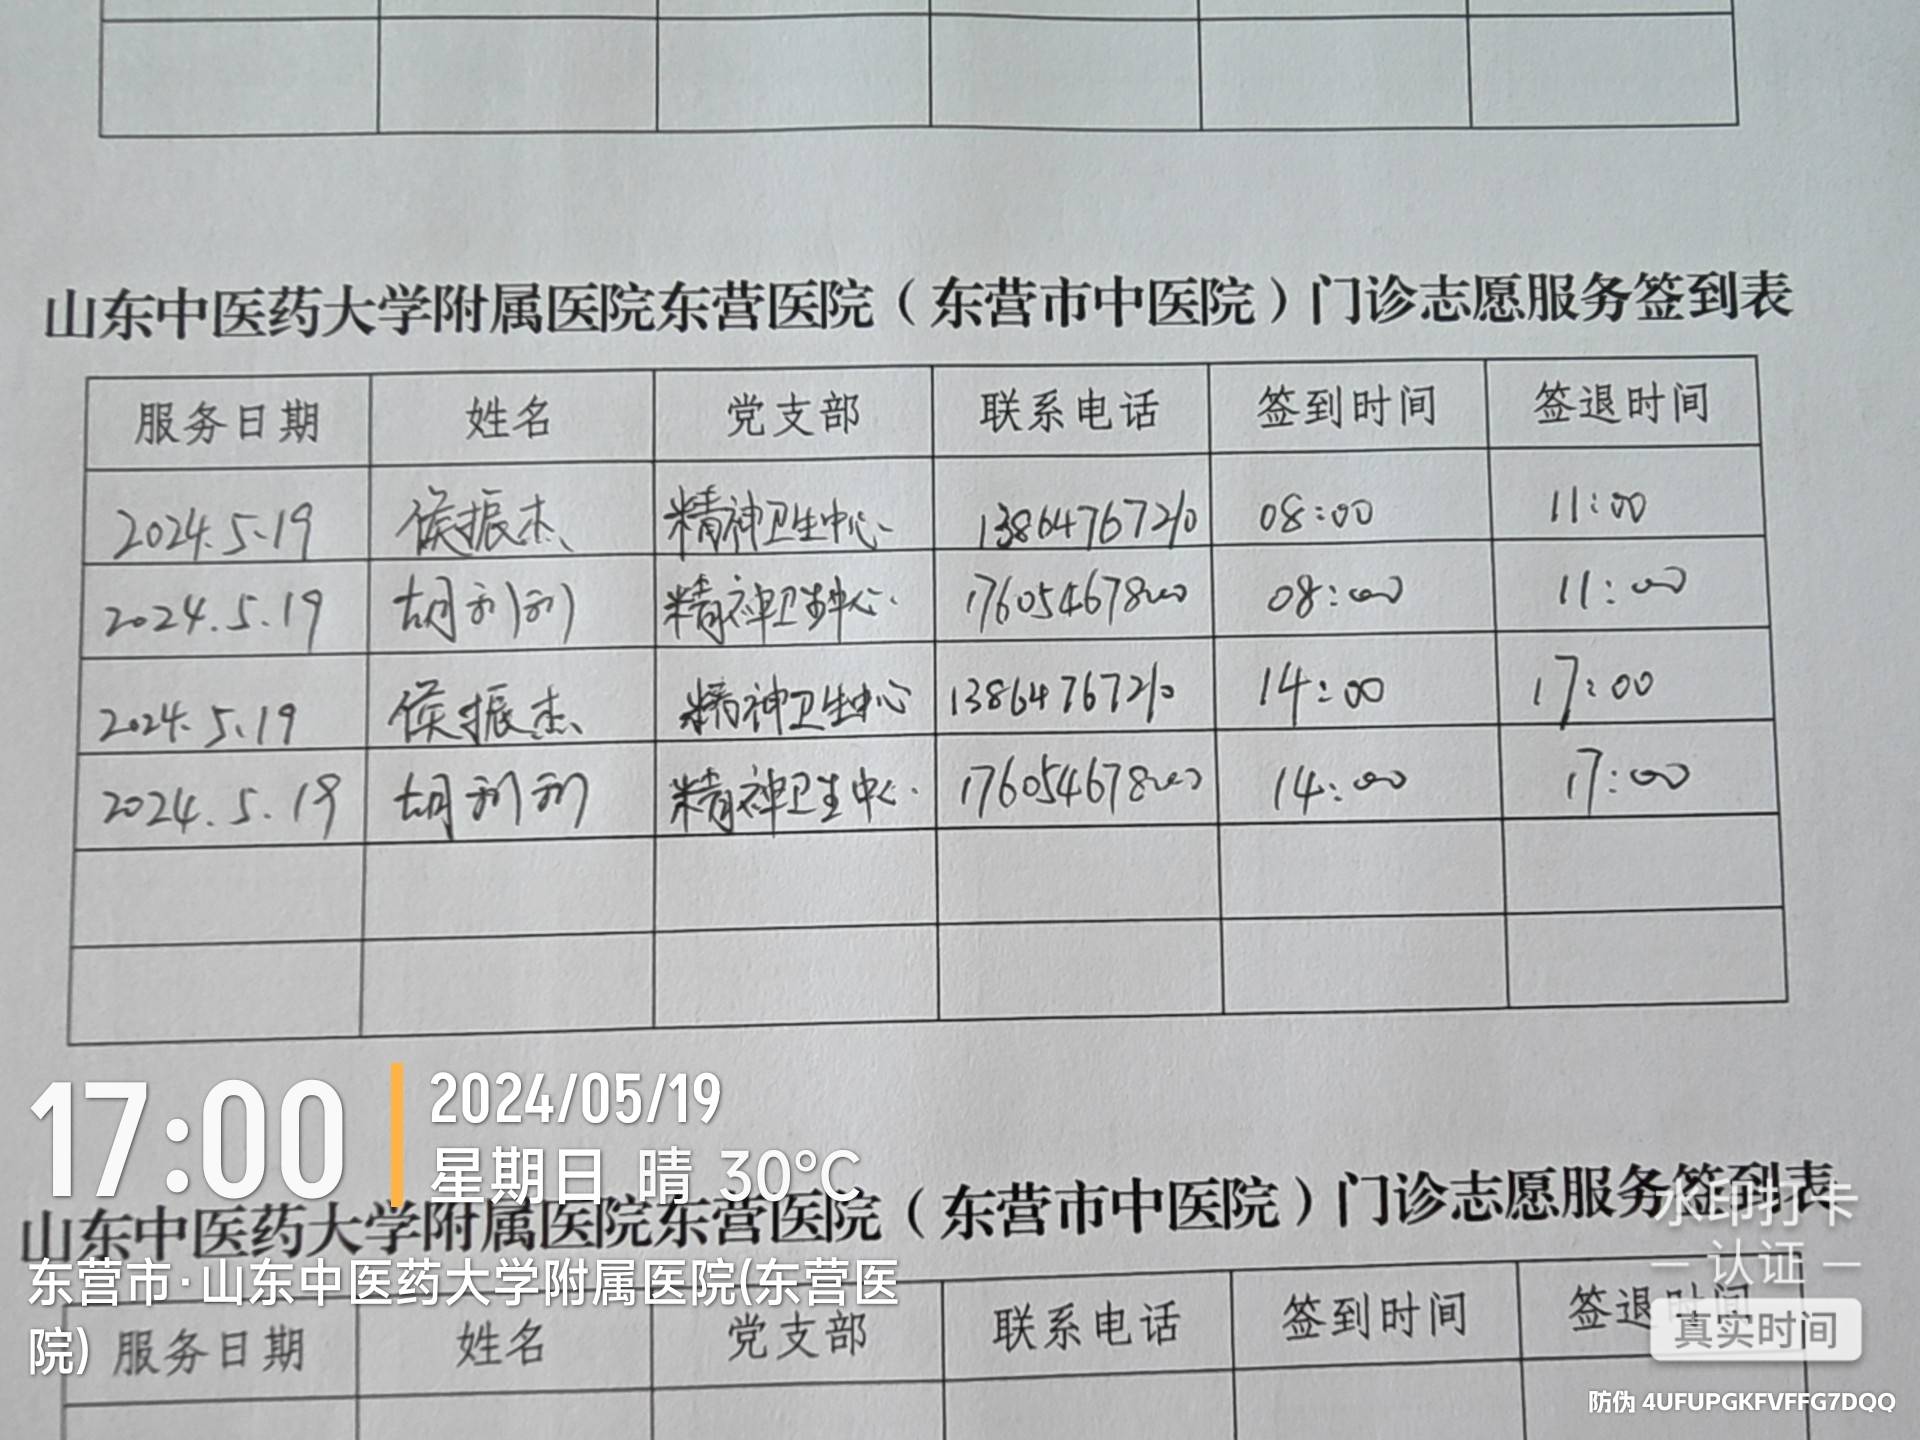 山东中医药大学附属医院东营医院（东营市中医院）门诊志愿服务签到表
服务日期 姓名 党支部 联系电话 签到时间 签退时间
2024.5.19 侯振杰 精神卫生中心 13864767210 08:00 11:00
2024.5.19 胡利利 精神卫生中心 17605467800 08:00 11:00
2024.5.19 侯振杰 精神卫生中心 13864767210 14:00 17:00
2024.5.19 胡利利 精神卫生中心 17605467800 14:00 17:00
17:00
2024/05/19
星期日 晴 30°C
山东中医药大学附属医院东营医院（东营市中医院）门诊志愿服务签到表
东营市·山东中医药大学附属医院(东营医
院)
服务日期 姓名 党支部 联系电话 签到时间 签退时间
水印打卡
认证
真实时间
防伪 4UFUPGKFVFFG7DQQ